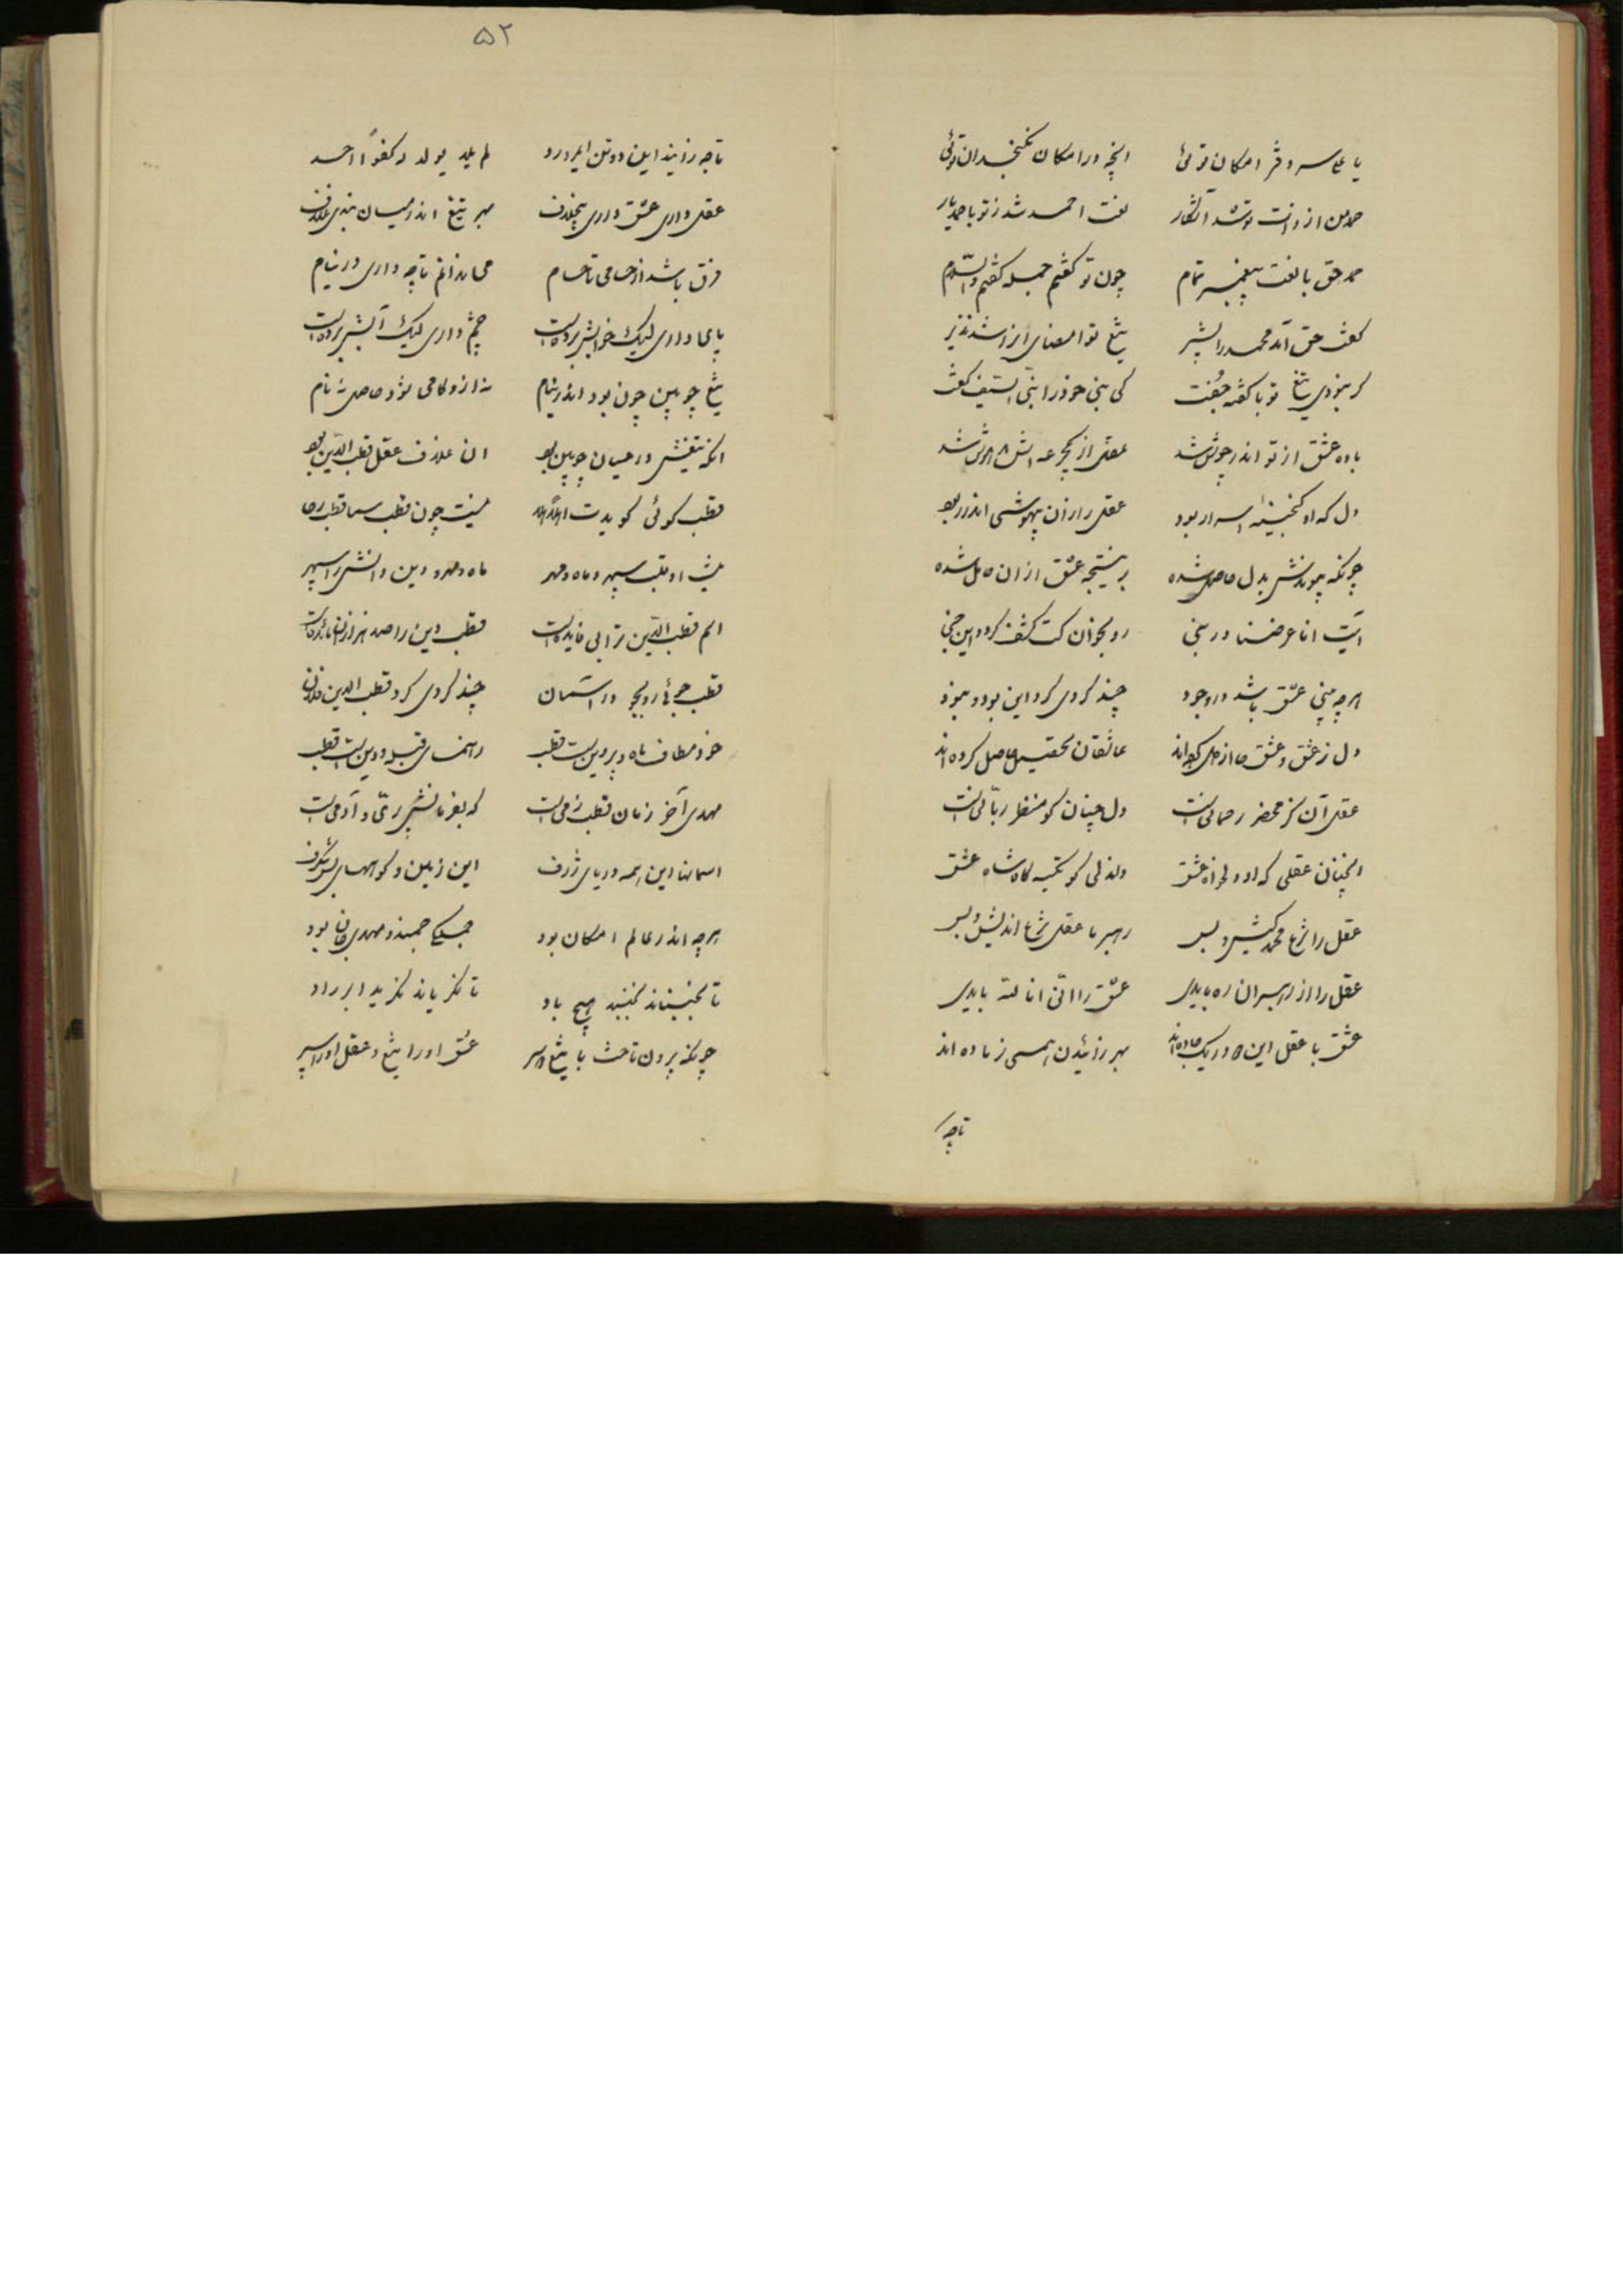 ۵۲
یا علی سر دفتر امکان توئی آنچه در امکان نگنجد آن توئی
حمد من از ذات تو شد آشکار نعت احمد شد ز تو با حمد یار
حمد حق با نعت پیغمبر تمام چون تو گفتم جمله گفتم والسلام
گفت حق آمد محمد را بشیر تیغ تو امضای از شد نذیر
گر نبودی تیغ تو با گفته جفت کی نبی خود را نبی السیف گفت
باده عشق از تو اندر جوش شد عقل از یکجرعه اش مدهوش شد
دل که او گنجینه اسرار بود عقل را زان بیهوشی اندر ربود
چونکه پیوندش بدل حاصل شده نتیجه عشق از آن حامل شده
آیت انا عرضنا در نبی رو بخوان کت کشف گردد این خبی
هر چه بینی عشق باشد در وجود چند گردی گرد این بود و نبود
دل ز عشق و عشق ما از دل عاشقان تحقیق حاصل کرده اند
عقل آن کز محضر رحمانی است دل چنان کو منظر ربانی است
آنچنان عقلی که او دلخواه عشق دلی کو تکیه گاه شاه عشق
عقل را شرع محمد کیش و بس رهبر ما عقل شرع اندیش و بس
عقل را از رهبران ره بایدی عشق را انی انا الله بایدی
عشق با عقل این دو در یک جاده اند بهر زائیدن همی ز ماده اند
تاچه
تاچه زایند این دو تن ای مرد رد لم یلد یولد له کفوا احد
عقل داری عشق داری بیخلاف بهر تیغ اندر میان بندی غلاف
فرق باشد از حسامی تا حسام می ندانم تاچه داری در نیام
پای داری لیک خوابش برده است چشم داری لیک آبش برده است
تیغ چوبین چون بود اندر نیام نه از و کامی شود حاصل نه نام
آنکه تیغش در میان چوبین بود آن غلاف عقل قطب الدین بود
قطب گوئی گویدت نیست چون قطب سما قطب رحا
او قطب سپهر و ماه و مهر ماه و مهر و دین و دانش را سپهر
اسم قطب الدین ترا بی فایده است قطب دین را صد هزاران مائده است
قطب جوئی رو بجو در آسمان چند گردی گرد قطب الدین خان
خود مطاف ماه و پروین است قطب رهنمای قبله و دین است قطب
مهدی آخر زمان قطب زمی است که بفرمانش پری و آدمی است
آسمانها این همه دریای ژرف این زمین و کوههای بس شگرف
هر چه اندر عالم امکان بود جملگی جنبند و مهدی جان بود
تا نجنباند نجنبد هیچ باد تا نگریاند نگرید ابر راد
چونکه بیرون تاخت با تیغ و سپر عشق او را تیغ و عقل او را سپر